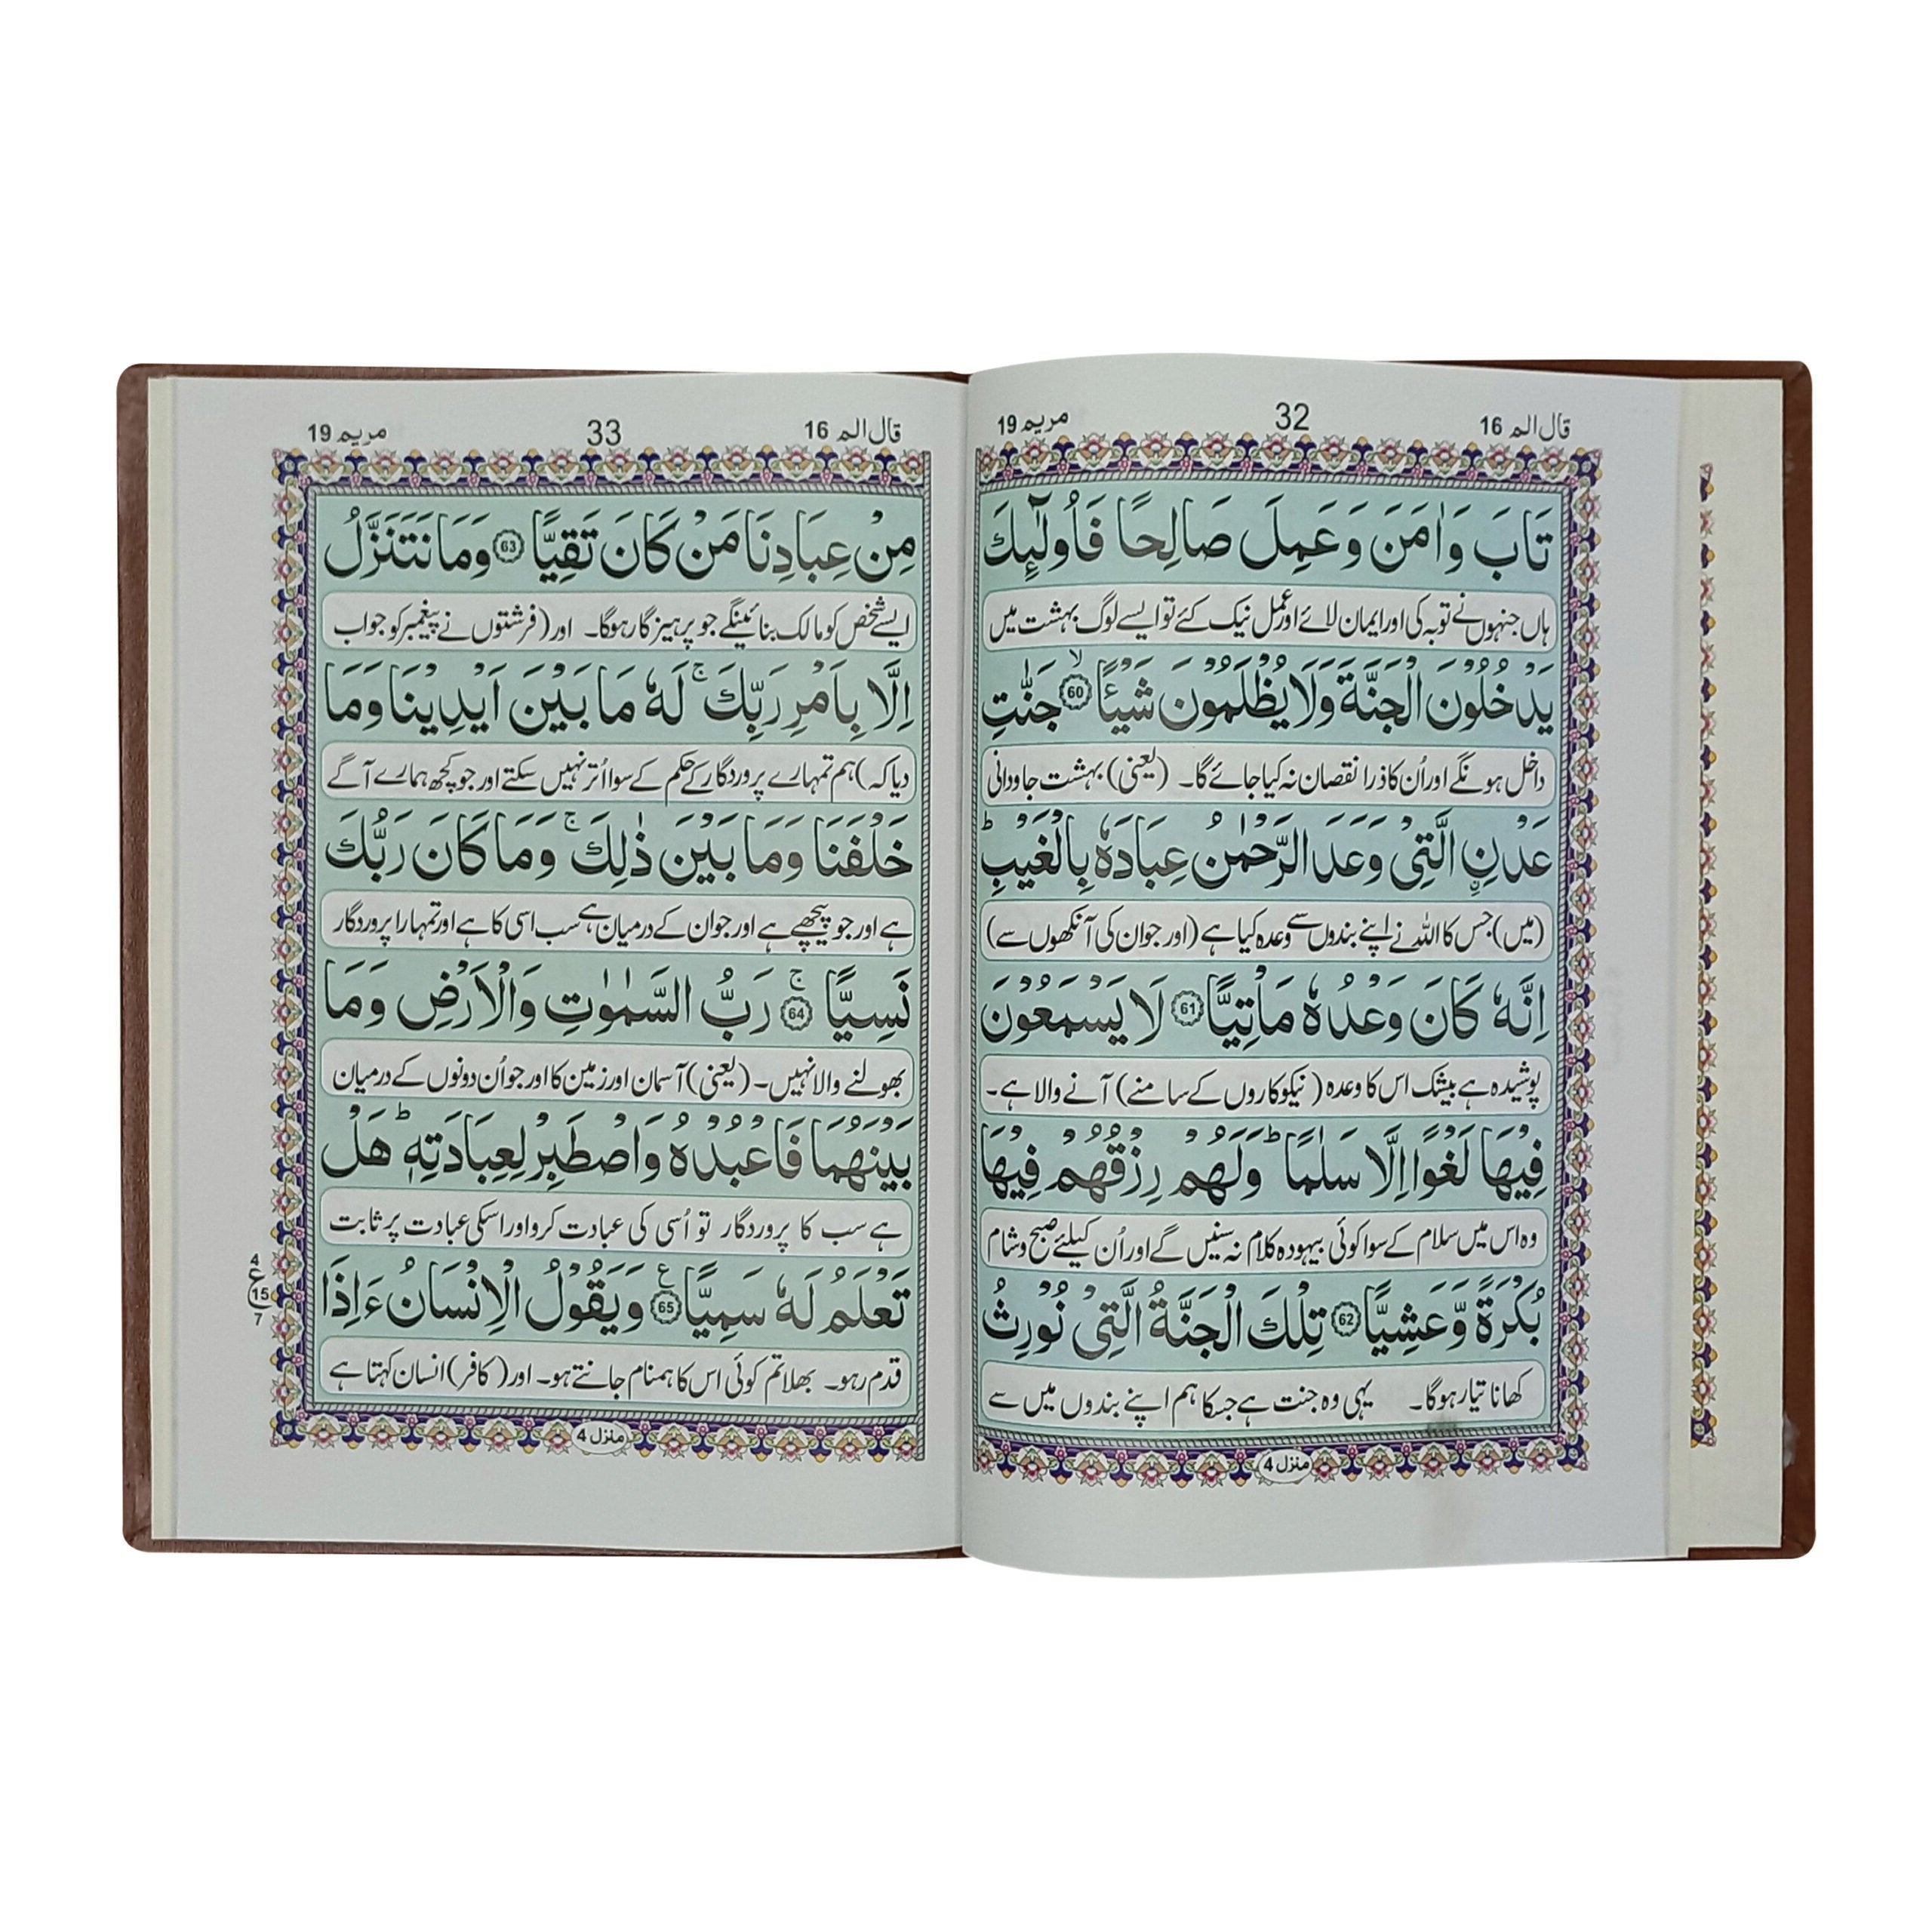 قال الم 16
32
مریم 19
تَابَ وَاٰمَنَ وَعَمِلَ صَالِحًا فَاُولٰٓئِكَ
ہاں جنہوں نے توبہ کی اور ایمان لائے اور عمل نیک کئے تو ایسے لوگ بہشت میں
يَدْخُلُوْنَ الْجَنَّةَ وَلَا يُظْلَمُوْنَ شَيْـًٔا ۙ60 جَنّٰتِ
داخل ہونگے اور اُن کا ذرا نقصان نہ کیا جائے گا۔ (یعنی) بہشت جاودانی
عَدْنِ ۨالَّتِيْ وَعَدَ الرَّحْمٰنُ عِبَادَهٗ بِالْغَيْبِ ؕ
(میں) جس کا اللہ نے اپنے بندوں سے وعدہ کیا ہے (اور جو ان کی آنکھوں سے)
اِنَّهٗ كَانَ وَعْدُهٗ مَاْتِيًّا 61 لَا يَسْمَعُوْنَ
پوشیدہ ہے بیشک اس کا وعدہ (نیکوکاروں کے سامنے) آنے والا ہے۔
فِيْهَا لَغْوًا اِلَّا سَلٰمًا ؕ وَلَهُمْ رِزْقُهُمْ فِيْهَا
وہ اس میں سلام کے سوا کوئی بیہودہ کلام نہ سنیں گے اور اُن کیلئے صبح و شام
بُكْرَةً وَّعَشِيًّا 62 تِلْكَ الْجَنَّةُ الَّتِيْ نُوْرِثُ
کھانا تیار ہوگا۔ یہی وہ جنت ہے جسکا ہم اپنے بندوں میں سے
منزل 4
قال الم 16
33
مریم 19
مِنْ عِبَادِنَا مَنْ كَانَ تَقِيًّا 63 وَمَا نَتَنَزَّلُ
ایسے شخص کو مالک بنائینگے جو پرہیزگار ہوگا۔ اور (فرشتوں نے پیغمبر کو جواب
اِلَّا بِاَمْرِ رَبِّكَ ۚ لَهٗ مَا بَيْنَ اَيْدِيْنَا وَمَا
دیا کہ) ہم تمہارے پروردگار کے حکم کے سوا اُتر نہیں سکتے اور جو کچھ ہمارے آگے
خَلْفَنَا وَمَا بَيْنَ ذٰلِكَ ۚ وَمَا كَانَ رَبُّكَ
ہے اور جو پیچھے ہے اور جو ان کے درمیان ہے سب اسی کا ہے اور تمہارا پروردگار
نَسِيًّا ۚ64 رَبُّ السَّمٰوٰتِ وَالْاَرْضِ وَمَا
بھولنے والا نہیں۔ (یعنی) آسمان اور زمین کا اور جو اُن دونوں کے درمیان
بَيْنَهُمَا فَاعْبُدْهُ وَاصْطَبِرْ لِعِبَادَتِهٖ ؕ هَلْ
ہے سب کا پروردگار تو اُسی کی عبادت کرو اور اسکی عبادت پر ثابت
تَعْلَمُ لَهٗ سَمِيًّا ع65 وَيَقُوْلُ الْاِنْسَانُ ءَاِذَا
4
ع
15
7
قدم رہو۔ بھلا تم کوئی اس کا ہمنام جانتے ہو۔ اور (کافر) انسان کہتا ہے
منزل 4